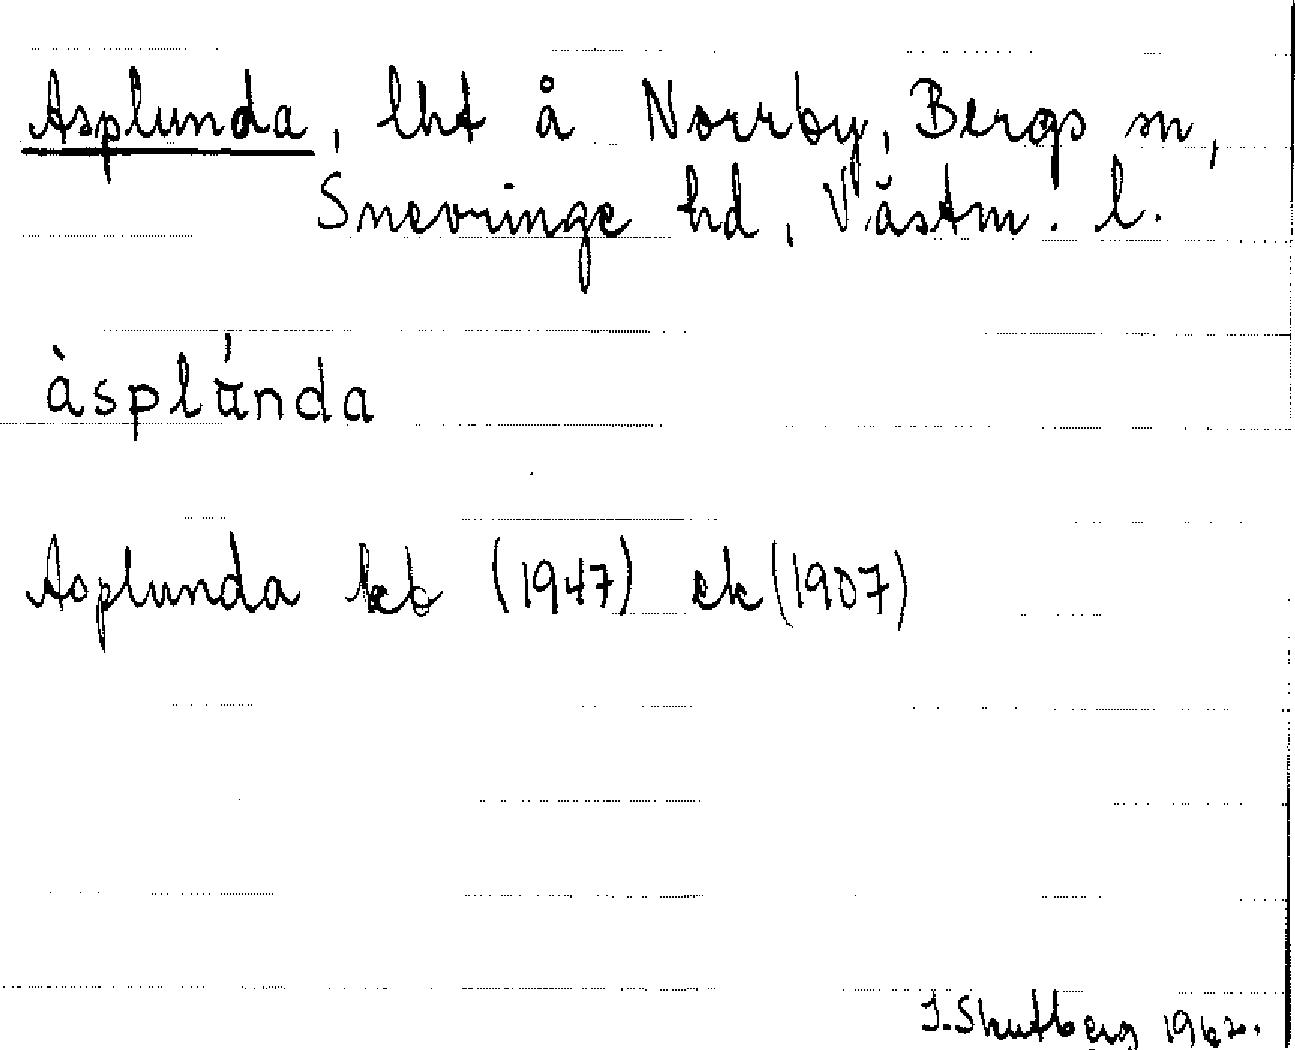 Asplunda, lht å Norrby, Bergs sn,
Snevringe hd, Västm. l.
àsplánda
Asplunda kb (1947) ek (1907)
J. Skutberg 1962.